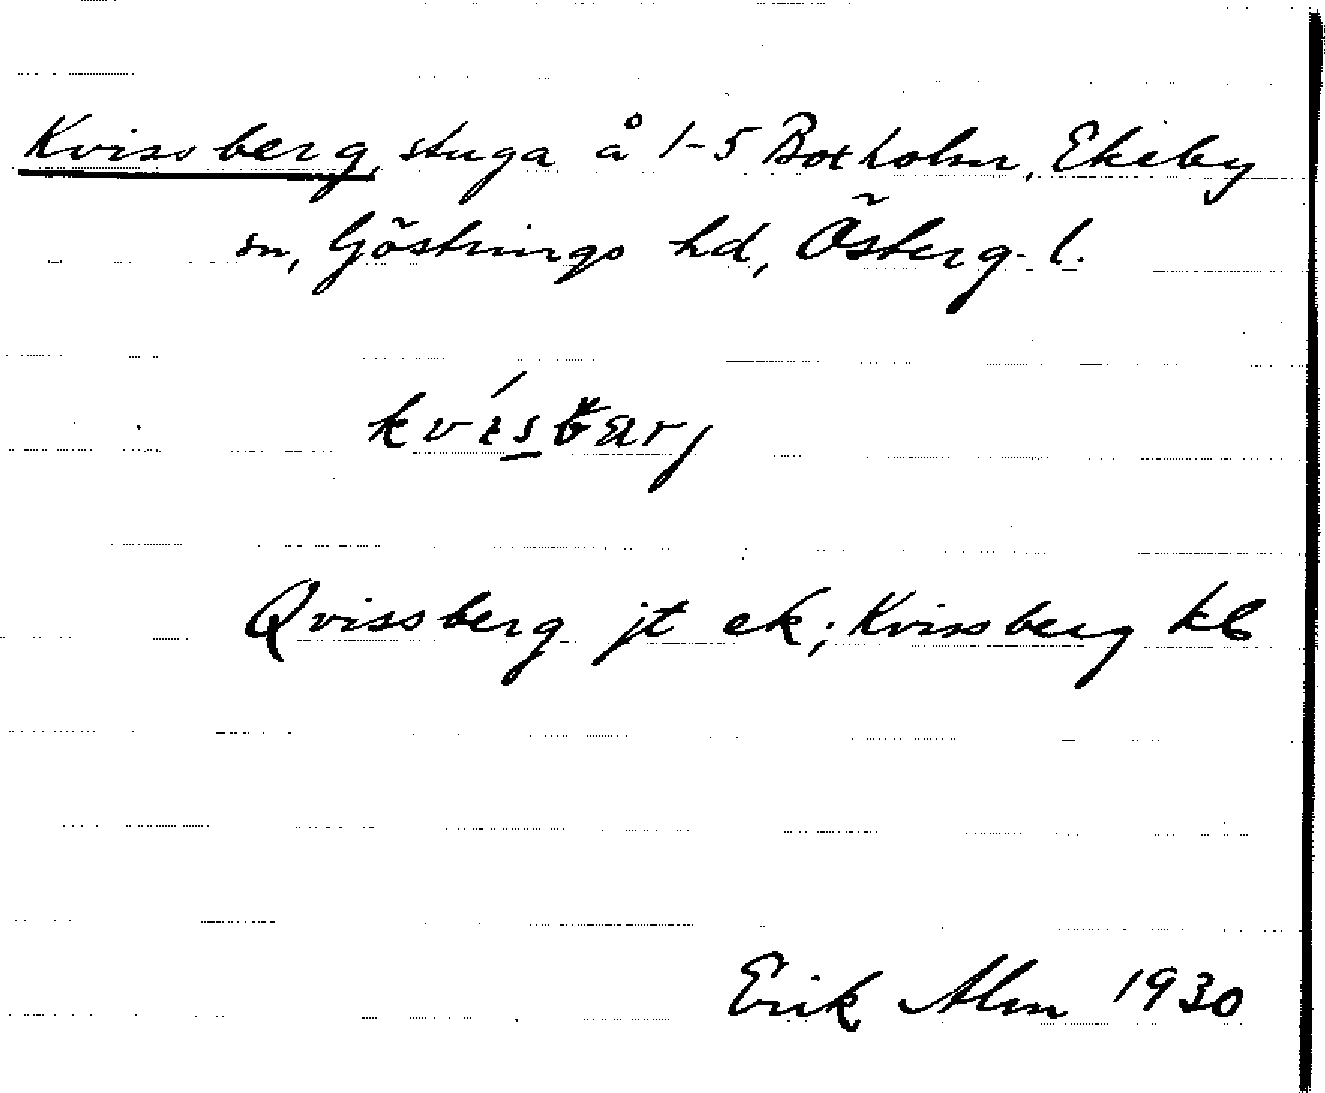 Kvissberg, stuga å 1-5 Boxholm, Ekeby
sn, Göstrings hd, Österg. l.
Qvissberg jt ek; Kvissberg kb
Erik Alm 1930